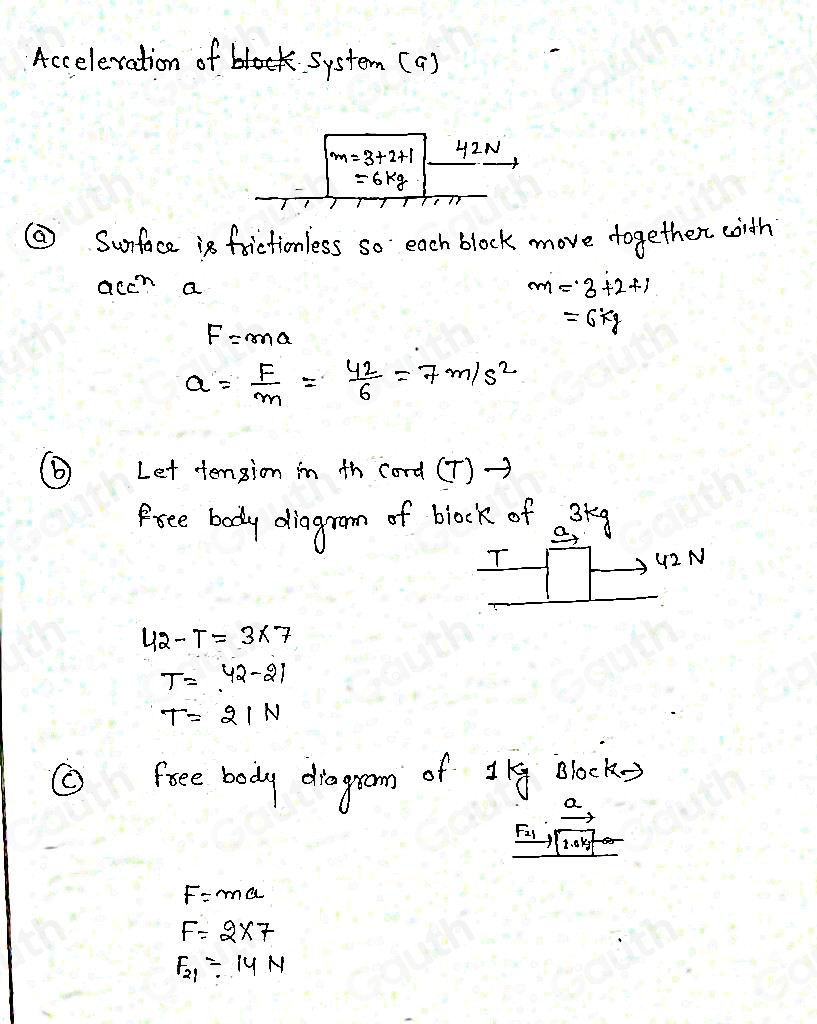 Acceleration of block System (a)
m = 3+2+1
= 6 Kg
42N
(a) Surface is frictionless so each block move together with
accn a
m = 3+2+1
= 6 Kg
F = ma
a = F/m = 42/6 = 7 m/s²
(b) Let tension in th Cord (T) →
Free body diagram of block of 3kg
a
T
42 N
42 - T = 3×7
T = 42-21
T = 21 N
(c) free body diagram of 1 kg Block→
a
F21
F = ma
F = 2×7
F21 = 14 N